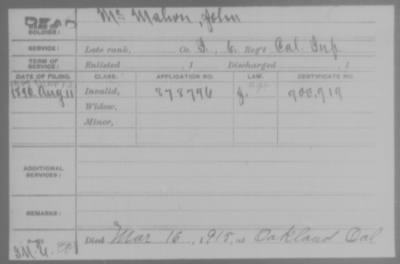 DEAD Mc Mahon, John
SOLDIER:
SERVICE: Late rank, Co. I, 6, Reg't Cal. Inf.
TERM OF SERVICE: Enlisted , 1 Discharged , 1
DATE OF FILING. CLASS. APPLICATION NO. LAW. CERTIFICATE NO.
Aug 11 Invalid, 878796 g. 900,919
Widow,
Minor,
ADDITIONAL SERVICES:
REMARKS:
Died Mar 15, 1915, at Oakland Cal